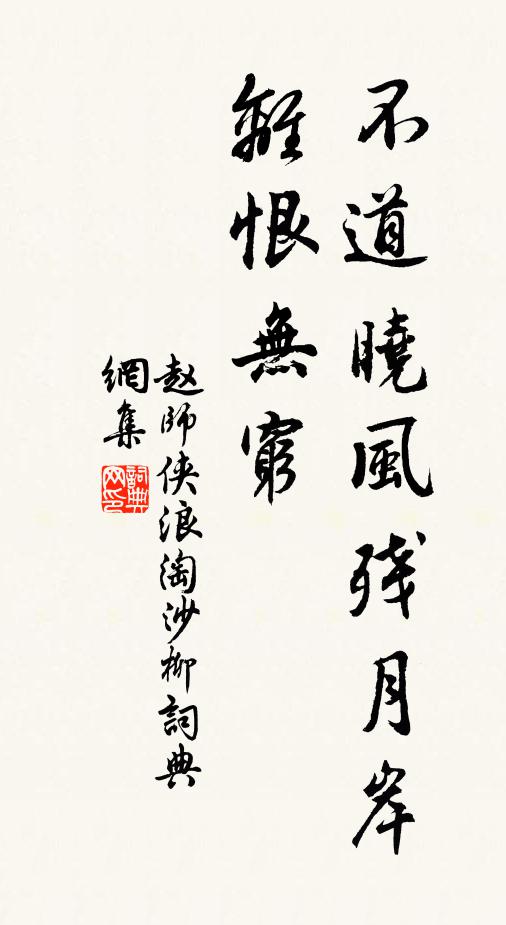 不道曉風残月岸
離恨無窮
赵師侠浪淘沙柳詞典
網集
詞典網印